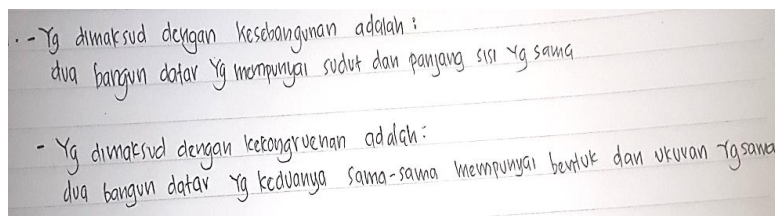 - Yg dimaksud dengan kesebangunan adalah :
dua bangun datar Yg mempunyai sudut dan panjang sisi Yg sama
- Yg dimaksud dengan kekongruenan adalah :
dua bangun datar Yg keduanya sama-sama mempunyai bentuk dan ukuran Yg sama